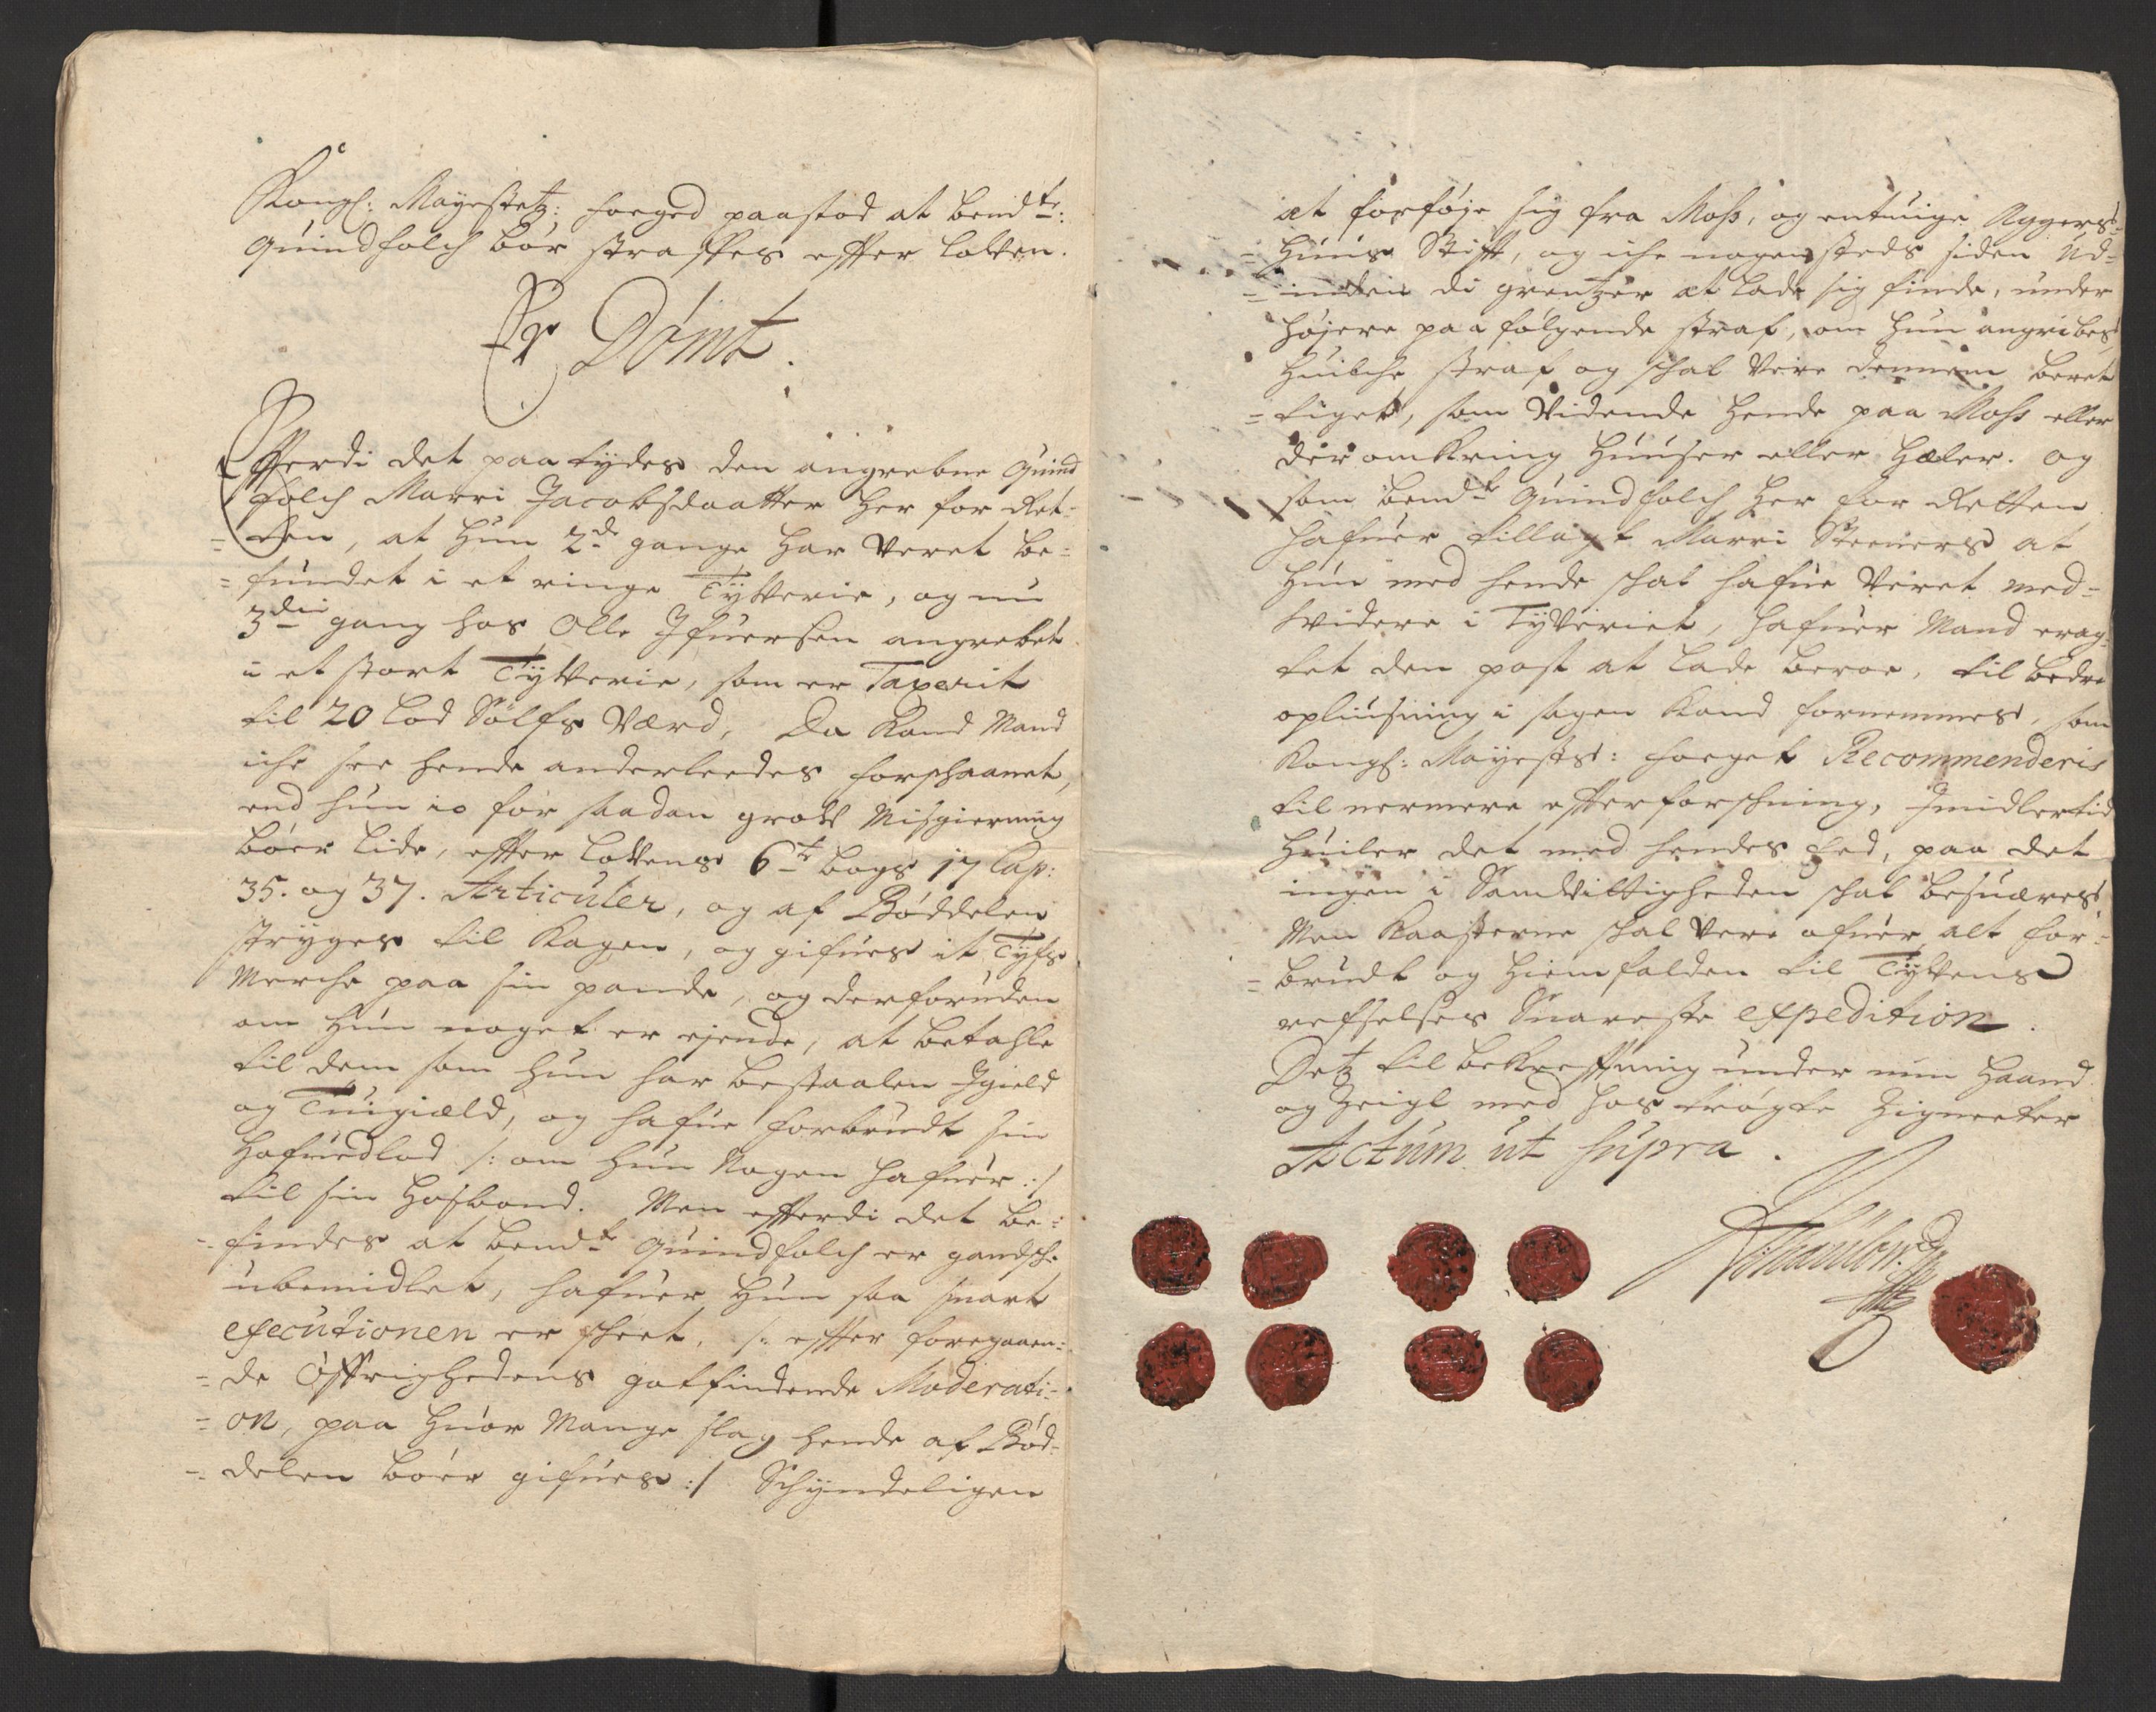 Kongl: Mayestetz: foeged paastod at bemdte:
Quindfolch bør straffes effter lowen.
Er Dømt.
Efferdi det paa lydes den angrebne Quind
folch Marri Jacobsdaatter her for Ret-
=ten, at hun 2de gange har veret be=
=fundet i et ringe Tyverie, og nu
3die gang hos Olle Ifuersen angrebet
i et stort Tyverie, som er Taxerit
til 20 lod Sølfs værd, Da kand Mand
iche see hende anderleedes forschaanet,
end hun jo for saadan groff Misgierning
bøer lide, effter lovens 6te bogs 17 Cap:
35. og 37. Articuler, og af Bøddelen
stryges til kagen, og gifues it Tyfs
Merche paa sin pande, og derforuden
om hun noget er ejende, at betahle
til dem som hun har bestaalen Igield
og Tuigiæld, og hafue forbrudt sin
Hofuedlod /: om hun Nogen hafuer :/
til sin Hosbond. Men efferdi det be=
=findes at bemdte Quindfolch er gandsche
ubemidlet, hafuer hun saa snart
executionen er scheet, /: effter foregaaen=
=de Øffrighedens gotfindende Moderati=
=on, paa huor Mange slag hende af Bød=
=delen bøer gifues :/ Schyndeligen
at forføje sig fra Moss, og entuige Aggers=
=huus Stift, og iche nogensteds siden ud=
=inden di grentzer at lade sig finde, under
højere paafølgende straf, om hun angribes,
huilche straf og schal være dennem beret
=tiget, som vidende hende paa Moss eller
der omkring Huuser eller Hæler. og
som bemdte Quindfolch her for Retten
hafuer tillagt Marri Steeners at
hun med hende schal hafue veret med=
videre i Tyveriet, hafuer Mand erag=
tet den post at lade beroe, til bedre
opliusning i sagen kand fornemmes, som
Kongl: Mayests: foeget Recommenderis
til nermere effterforschning, Imidlertid
huiler det med hendes Eed, paa det
ingen i Samvittigheden schal besuæres
Men kaasterne schal vere ofuer alt for=
=brudt og hiemfalden til Tyvens
refselses Snareste expedition.
Detz til bekrefftning under min Haand
og Zeigl med hos trøgte Zigneter
Actum ut supra.